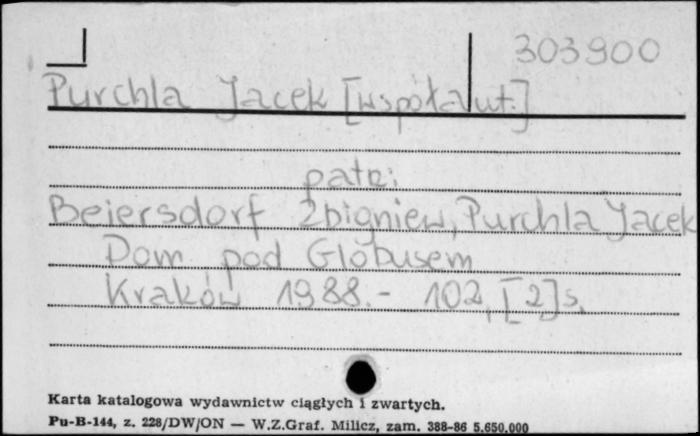 303900
Purchla Jacek [współaut.]
patrz:
Beiersdorf Zbigniew, Purchla Jacek
Dom pod Globusem
Kraków 1988.- 102, [2]s.
Karta katalogowa wydawnictw ciągłych i zwartych.
Pu-B-144, z. 228/DW/ON — W.Z.Graf. Milicz, zam. 388-86 5.650.000